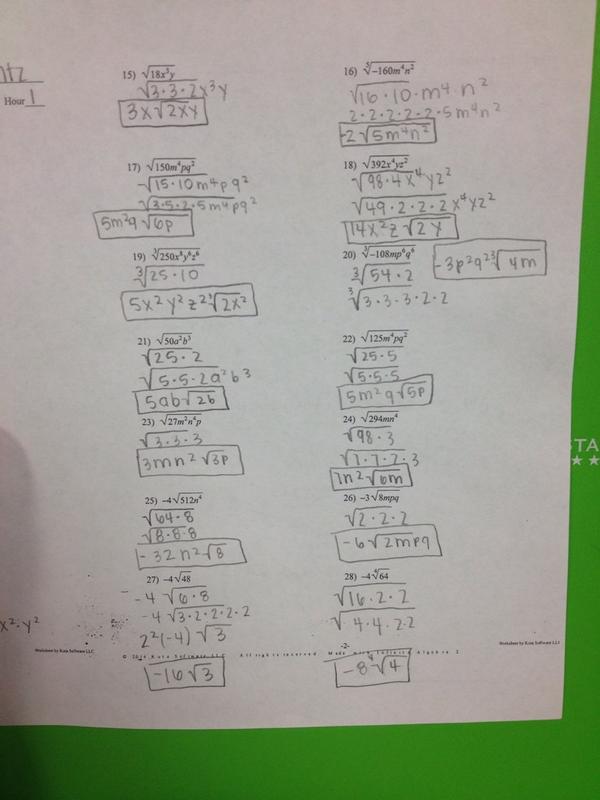 ntz
Hour 1
15) √18x³y
√3·3·2x³y
3x√2xy
16) ⁵√-160m⁴n²
√16·10·m⁴·n²
2·2·2·2·2·5m⁴n²
-2√5m⁴n²
17) √150m⁴pq²
√15·10m⁴pq²
√3·5·2·5m⁴pq²
5m²q√6p
18) √392x⁴yz²
√98·4x⁴yz²
√49·2·2·2x⁴yz²
14x²z√2y
19) ³√250x⁸y⁶z⁶
³√25·10
5x²y²z²³√2x²
20) ³√-108mp⁶q⁶
³√54·2
³√3·3·3·2·2
-3p²q²³√4m
21) √50a²b³
√25·2
√5·5·2a²b³
5ab√2b
22) √125m⁴pq²
√25·5
√5·5·5
5m²q√5p
23) √27m²n⁴p
√3·3·3
3mn²√3p
24) √294mn⁴
√98·3
√7·7·2·3
7n²√6m
25) -4√512n⁴
√64·8
√8·8·8
-32n²√8
26) -3√8mpq
√2·2·2
-6√2mpq
27) -4√48
-4√6·8
-4√3·2·2·2·2
2²(-4)√3
-16√3
28) -4⁴√64
√16·2·2
√4·4·2·2
-8⁴√4
x²·y²
Worksheet by Kuta Software LLC
-2-
Worksheet by Kuta Software LLC
All rights reserved. Made with Infinite Algebra 2
STA
★★